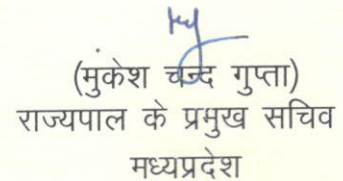 (मुकेश चन्द गुप्ता)
राज्यपाल के प्रमुख सचिव
मध्यप्रदेश